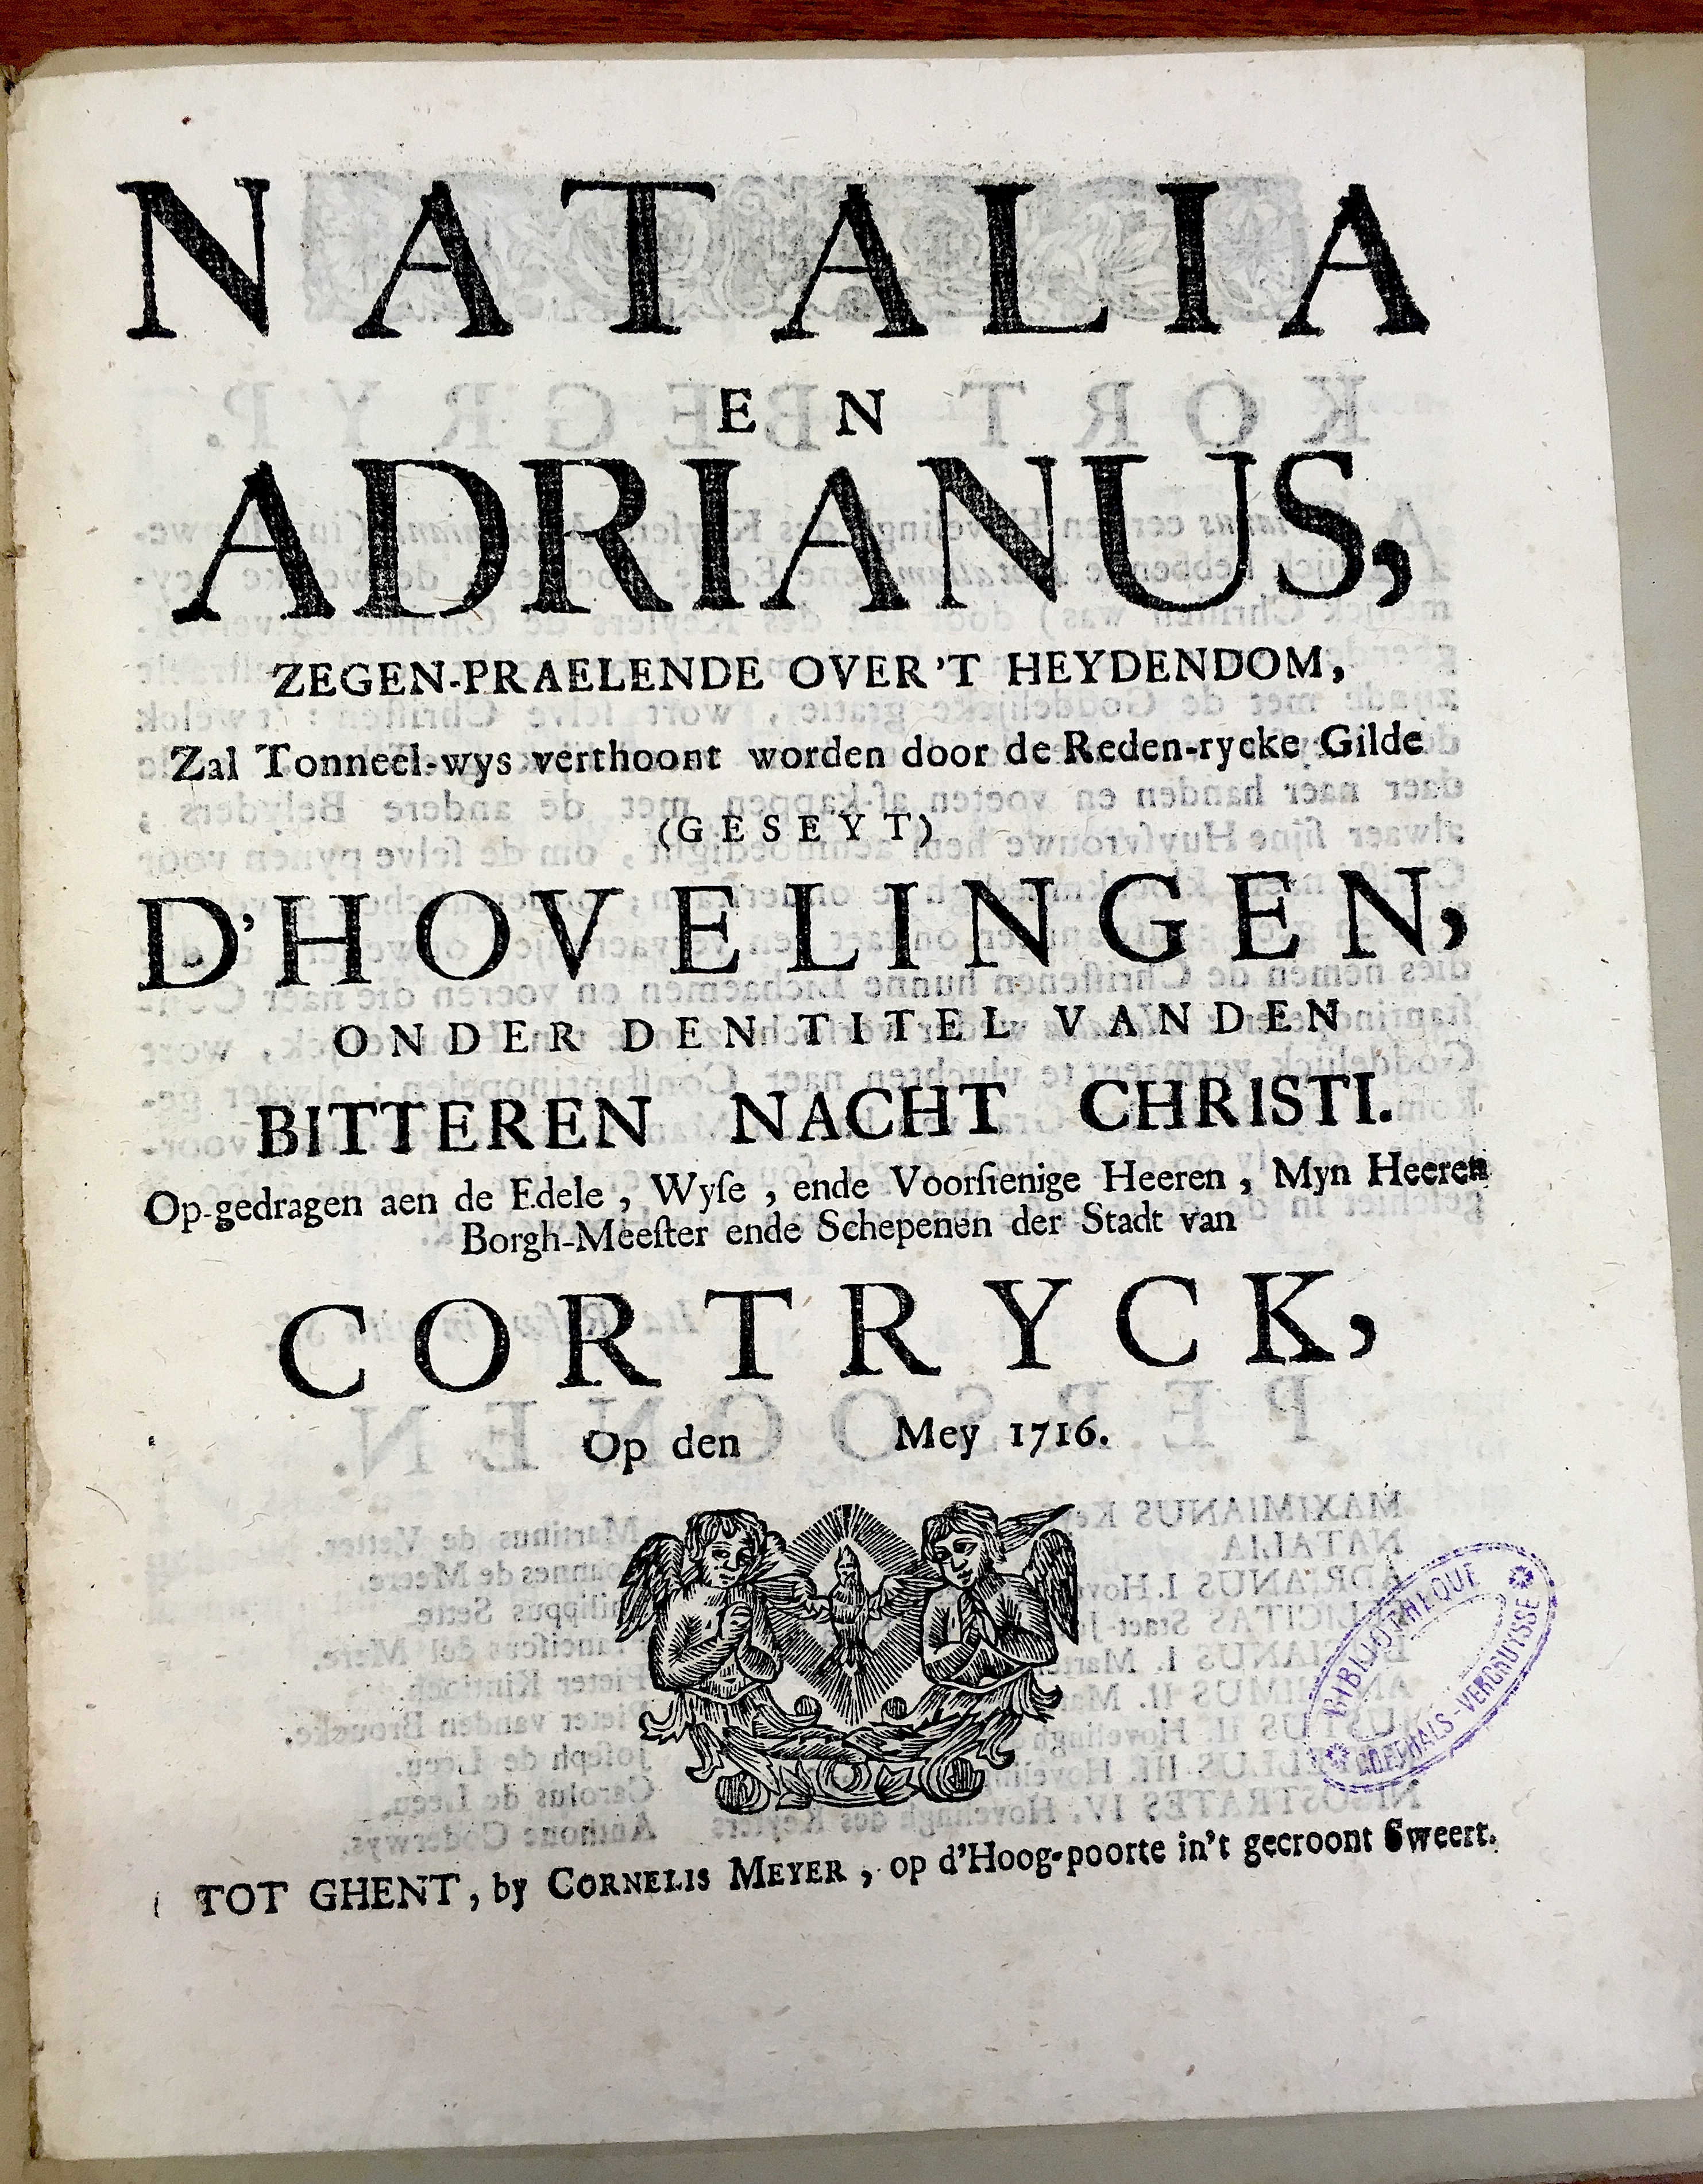 NATALIA
EN
ADRIANUS,
ZEGEN-PRAELENDE OVER'T HEYDENDOM,
Zal Tonneel-wys verthoont worden door de Reden-rycke Gilde
(GESEYT)
D'HOVELINGEN,
ONDER DEN TITEL VANDEN
BITTEREN NACHT CHRISTI.
Op-gedragen aen de Edele, Wyse, ende Voorsienige Heeren, Myn Heeren
Borgh-Meester ende Schepenen der Stadt van
CORTRYCK,
Op den Mey 1716.
BIBLIOTHEQUE
GOETHALS-VERCRUYSSE
TOT GHENT, by CORNELIS MEYER, op d'Hoog-poorte in't gecroont Sweert.